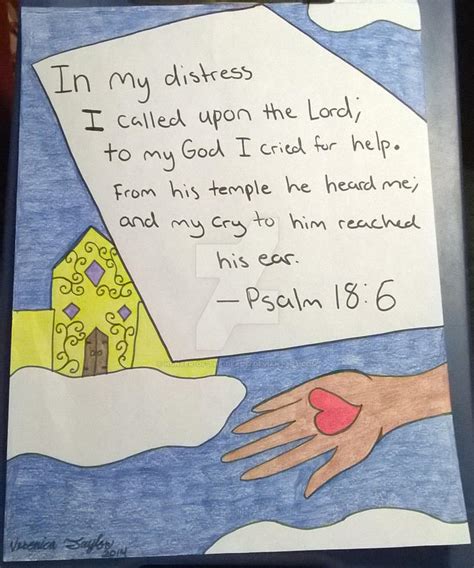 In my distress
I called upon the Lord;
to my God I cried for help.
From his temple he heard me;
and my cry to him reached
his ear.
— Psalm 18:6
Veronica Taylor
2014